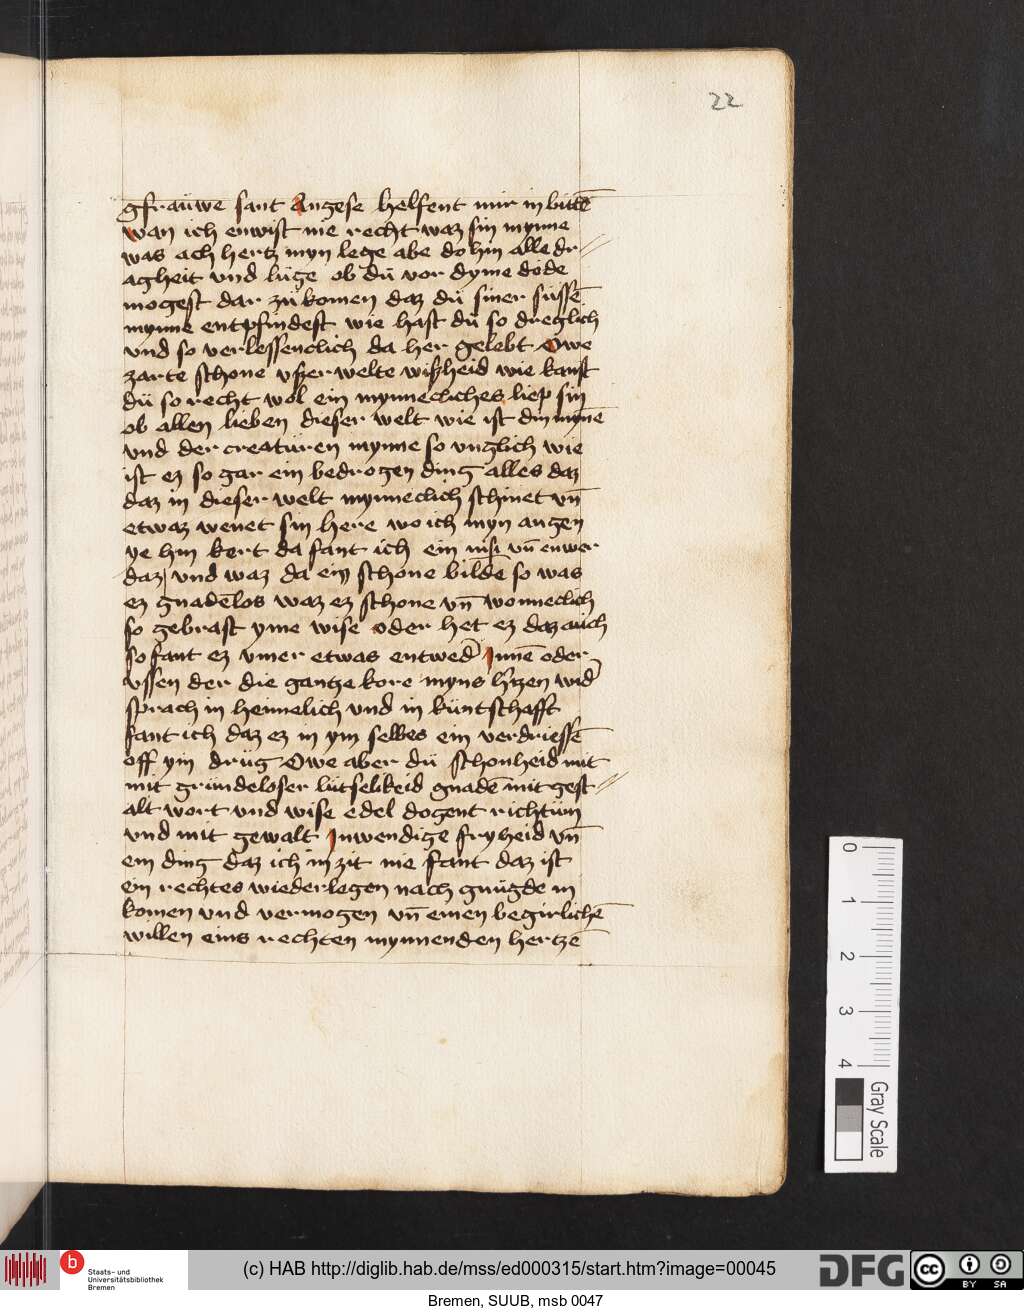 22
gfrauwe sant Angese helfent mir in bittē
wan ich enwist nie recht waz sin mynne
was ach hertz myn lege abe do hin alle dr-
agheit vnd lüge ob dü vor dyme dode
mogest dar zü komen daz dü siner süssē
mynne entpfindest wie hast dü so dreglich
vnd so verlessenclich da her gelebt Owe
zarte schone vßerwelte wißheid wie kanst
dü so recht wol ein mynnecliches liep sin
ob allen lieben dieser welt wie ist din mynē
vnd der creatüren mynne so vnglich wie
ist ez so gar ein bedrogen ding alles daz
daz in dieser welt mynneclich schinet vn̄
etwaz wenet sin here wo ich myn augen
ye hin kert da fant ich ein nisi vn̄ enwer
daz vnd waz da ein schone bilde so was
ez gnadēlos waz ez schone vn̄ wonneclich
so gebrast yme wise oder het ez daz auch
so fant ez ymer etwas entwed' Jnnē oder
vssen der die gantze kore myns h'tzen wid'
sprach in heimelich vnd in küntschafft
fant ich daz ez in ym selbes ein verdriessē
off ym drüg Owe aber dü schonheid mit
mit gründeloser lütselikeid gnadē mit gest-
alt wort vnd wise edel dogent richtüm
vnd mit gewalt Jnwendige fryheid vn̄
ein ding daz ich in zit nie fant daz ist
ein rechtes wiederlegen nach gnügde in
komen vnd vermogen vn̄ einen begirlichē
willen eins rechten mynnenden hertzē
0
1
2
3
4
Gray Scale
b
Staats- und
Universitätsbibliothek
Bremen
(c) HAB http://diglib.hab.de/mss/ed000315/start.htm?image=00045
DFG
cc
BY SA
Bremen, SUUB, msb 0047